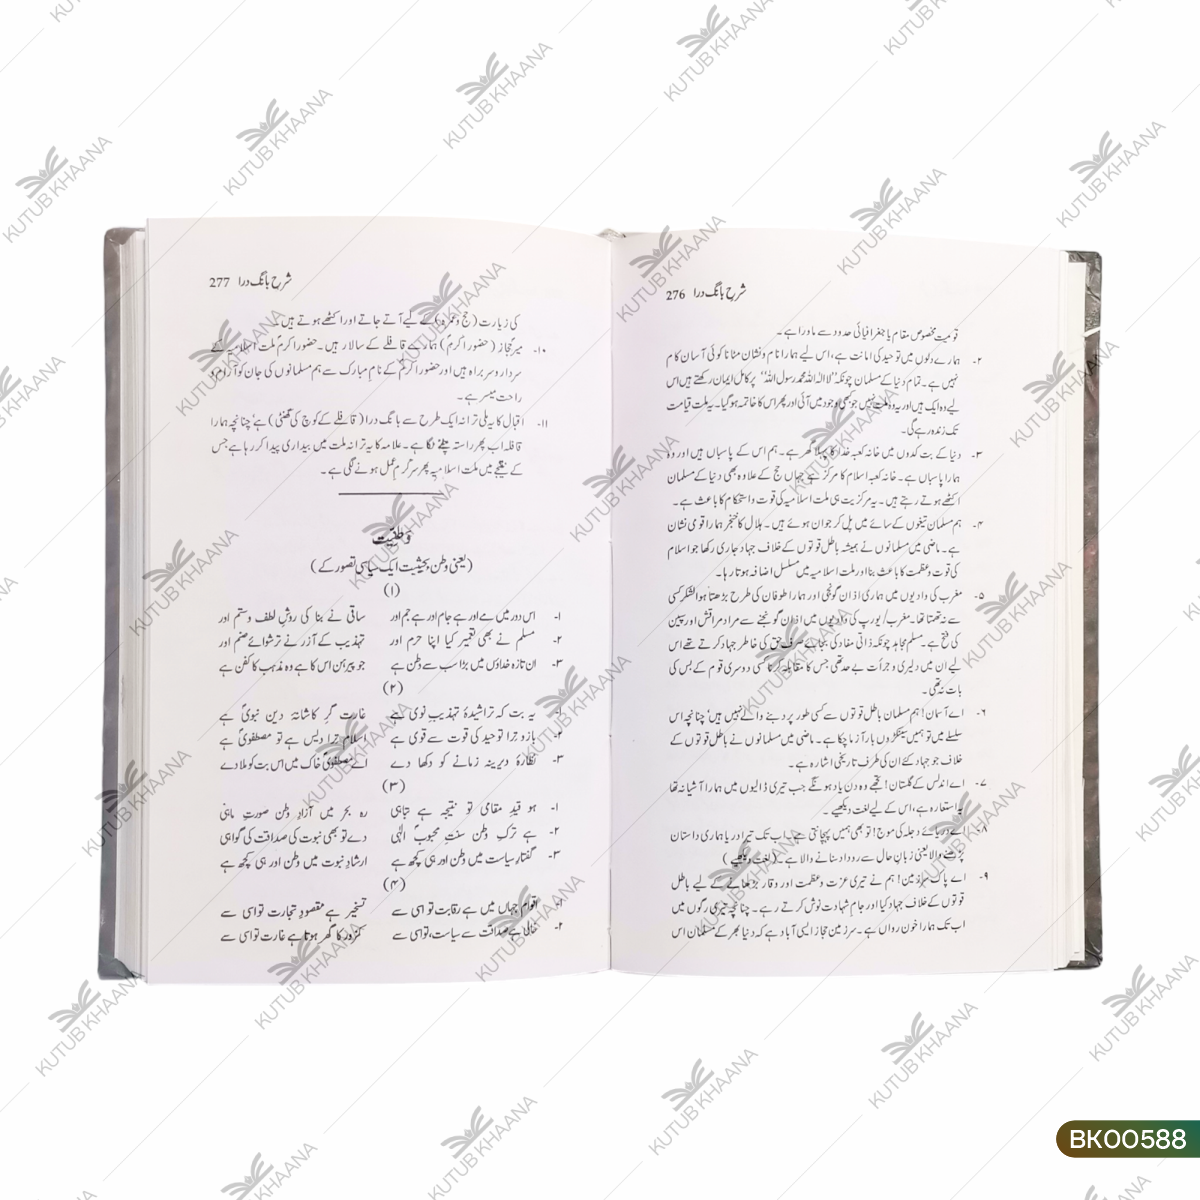 شرح بانگ درا 276
قومیت مخصوص مقام یا جغرافیائی حدود سے ماورا ہے۔
۲۔ ہمارے دلوں میں توحید کی امانت ہے، اس لیے ہمارا نام و نشان مٹانا کوئی آسان کام
نہیں ہے۔ تمام دنیا کے مسلمان چونکہ ’’لا الہ الا اللہ محمد رسول اللہ‘‘ پر کامل ایمان رکھتے ہیں اس
لیے وہ ایک ہیں اور یہ وہ ملت نہیں جو کبھی وجود میں آئی اور پھر اس کا خاتمہ ہو گیا۔ یہ ملت قیامت
تک زندہ رہے گی۔
۳۔ دنیا کے بت کدوں میں خانہ کعبہ خدا کا پہلا گھر ہے۔ ہم اس کے پاسباں ہیں اور وہ
ہمارا پاسباں ہے۔ خانہ کعبہ اسلام کا مرکز ہے جہاں حج کے علاوہ بھی دنیا کے مسلمان
اکٹھے ہوتے رہتے ہیں۔ یہ مرکزیت ہی ملت اسلامیہ کی قوت و استحکام کا باعث ہے۔
۴۔ ہم مسلمان تیغوں کے سائے میں پل کر جوان ہوئے ہیں۔ ہلال کا خنجر ہمارا قومی نشان
ہے۔ ماضی میں مسلمانوں نے ہمیشہ باطل قوتوں کے خلاف جہاد جاری رکھا جو اسلام
کی قوت و عظمت کا باعث بنا اور ملت اسلامیہ میں مسلسل اضافہ ہوتا رہا۔
۵۔ مغرب کی وادیوں میں ہماری اذان گونجی اور ہمارا طوفان کی طرح بڑھتا ہوا لشکر کسی
سے نہ تھمتا تھا۔ مغرب/یورپ کی وادیوں میں اذان گونجنے سے مراد مراقش اور سپین
کی فتح ہے۔ مسلم مجاہد چونکہ ذاتی مفاد کی بجائے صرف حق کی خاطر جہاد کرتے تھے اس
لیے ان میں دلیری و جرأت بے حد تھی جس کا مقابلہ کرنا کسی دوسری قوم کے بس کی
بات نہ تھی۔
۶۔ اے آسمان! ہم مسلمان باطل قوتوں سے کسی طور پر دبنے والے نہیں ہیں‘ چنانچہ اس
سلسلے میں تو ہمیں سینکڑوں بار آزما چکا ہے۔ ماضی میں مسلمانوں نے باطل قوتوں کے
خلاف جو جہاد کئے ان کی طرف تاریخی اشارہ ہے۔
۷۔ اے اندلس کے گلستان! تجھے وہ دن یاد ہونگے جب تیری ڈالیوں میں ہمارا آشیانہ تھا
یہ استعارہ ہے، اس کے لیے لغت دیکھیے۔
۸۔ اے دریائے دجلہ کی موج! تو بھی ہمیں پہچانتی ہے۔ اب تک تیرا دریا ہماری داستان
پڑھنے والا یعنی زبانِ حال سے روداد سنانے والا ہے۔ (لغت دیکھیے)
۹۔ اے پاک سرزمین! ہم نے تیری عزت و عظمت اور وقار بڑھانے کے لیے باطل
قوتوں کے خلاف جہاد کیا اور جامِ شہادت نوش کرتے رہے۔ چنانچہ تیری رگوں میں
اب تک ہمارا خون رواں ہے۔ سرزمین حجاز ایسی آباد ہے کہ دنیا بھر کے مسلمان اس
شرح بانگ درا 277
کی زیارت (حج و عمرہ) کے لیے آتے جاتے اور اکٹھے ہوتے ہیں۔
۱۰۔ میر حجاز (حضور اکرم) ہمارے قافلے کے سالار ہیں۔ حضور اکرم ملت اسلامیہ کے
سردار و سربراہ ہیں اور حضور اکرم کے نام مبارک سے ہم مسلمانوں کی جان کو آرام و
راحت میسر ہے۔
۱۱۔ اقبال کا یہ ملی ترانہ ایک طرح سے بانگ درا (قافلے کے کوچ کی گھنٹی) ہے‘ چنانچہ ہمارا
قافلہ اب پھر راستہ چلنے لگا ہے۔ علامہ کا یہ ترانہ ملت میں بیداری پیدا کر رہا ہے جس
کے نتیجے میں ملت اسلامیہ پھر سرگرم عمل ہونے لگی ہے۔
وطنیّت
(یعنی وطن بحیثیت ایک سیاسی تصور کے)
(۱)
۱۔ اس دور میں مے اور ہے جام اور ہے جم اور ساقی نے بنا کی روشِ لطف و ستم اور
۲۔ مسلم نے بھی تعمیر کیا اپنا حرم اور تہذیب کے آزر نے ترشوائے صنم اور
۳۔ ان تازہ خداؤں میں بڑا سب سے وطن ہے جو پیرہن اس کا ہے وہ مذہب کا کفن ہے
(۲)
۱۔ یہ بت کہ تراشیدۂ تہذیبِ نوی ہے غارت گرِ کاشانۂ دینِ نبوی ہے
۲۔ بازو ترا توحید کی قوت سے قوی ہے اسلام ترا دیس ہے تو مصطفوی ہے
۳۔ نظارۂ دیرینہ زمانے کو دکھا دے اے مصطفوی خاک میں اس بت کو ملا دے
(۳)
۱۔ ہو قیدِ مقامی تو نتیجہ ہے تباہی رہ بحر میں آزادِ وطن صورتِ ماہی
۲۔ ہے ترکِ وطن سنتِ محبوبؐ الٰہی دے تو بھی نبوت کی صداقت کی گواہی
۳۔ گفتارِ سیاست میں وطن اور ہی کچھ ہے ارشادِ نبوت میں وطن اور ہی کچھ ہے
(۴)
۱۔ اقوام جہاں میں ہے رقابت تو اسی سے تسخیر ہے مقصودِ تجارت تو اسی سے
۲۔ خالی ہے صداقت سے سیاست، تو اسی سے کمزور کا گھر ہوتا ہے غارت تو اسی سے
KUTUB KHAANA
BK00588